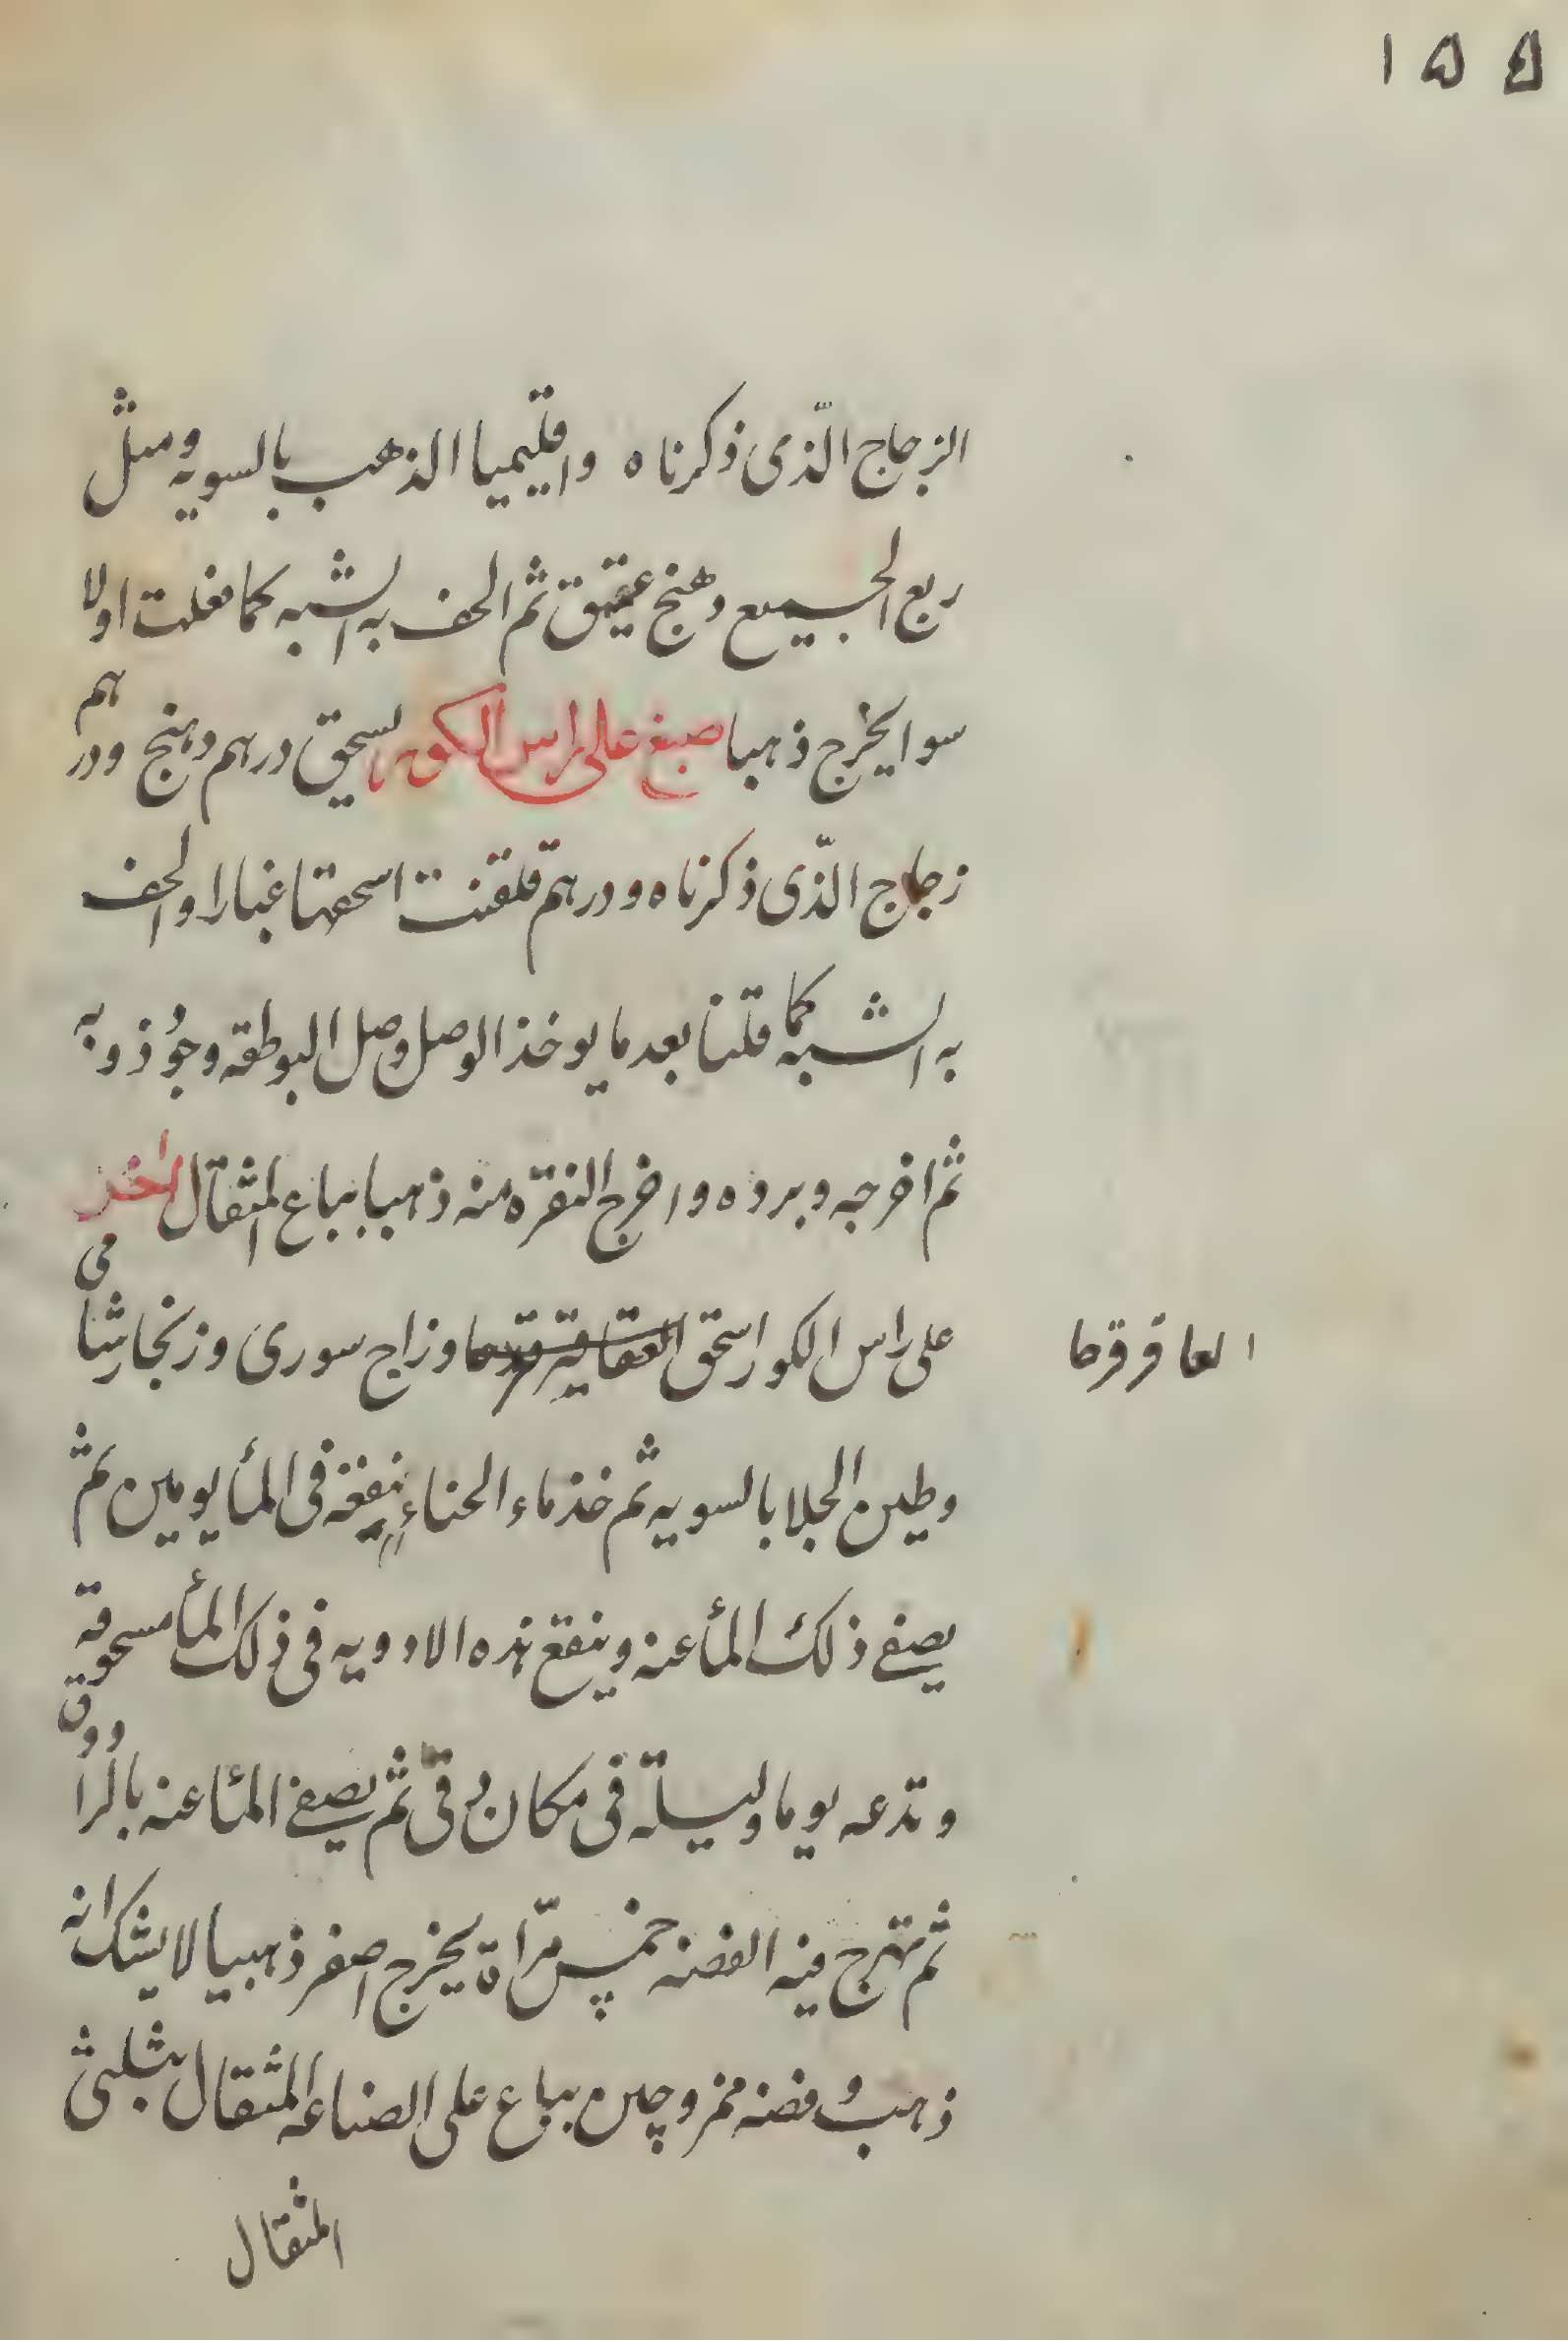 ١٥٥
الزجاج الّذى ذكرناه واقليميا الذهب بالسويه ومثل
ربع الجميع دهنج عتيق ثم الحف به الشبه كما فعلت اولا
سوا يخرج ذهبا صبغ على راس الكور لسحق درهم دهنج ودرهم
زجاج الّذى ذكرناه ودرهم قلقنت اسحقها غبارا والحف
به الشبه كما قلنا بعد ما يوخذ الوصل وصل البوطقه وجوّد ذوبه
ثم اخرجه وبرده واخرج النقره منه ذهبا يباع المثقال اخر
على راس الكور اسحق وزاج سورى وزنجار شامى
العاقرقرحا
وطين الجلا بالسويه ثم خذ ماء الحناء ينقعه فى المأ يومين ثم
يصفى ذلك المأ عنه وينقع هذه الادويه فى ذلك المأ مسحوقة
وتدعه يوما وليلة فى مكان دقى ثم يصفى المئا عنه بالراووق
ثم تهرج فيه الفضه خمس مرّاة يخرج اصفر ذهبيا لا يشك انه
ذهب وفضه ممزوجين يباع على الصناعه المثقال بثلثى
المثقال